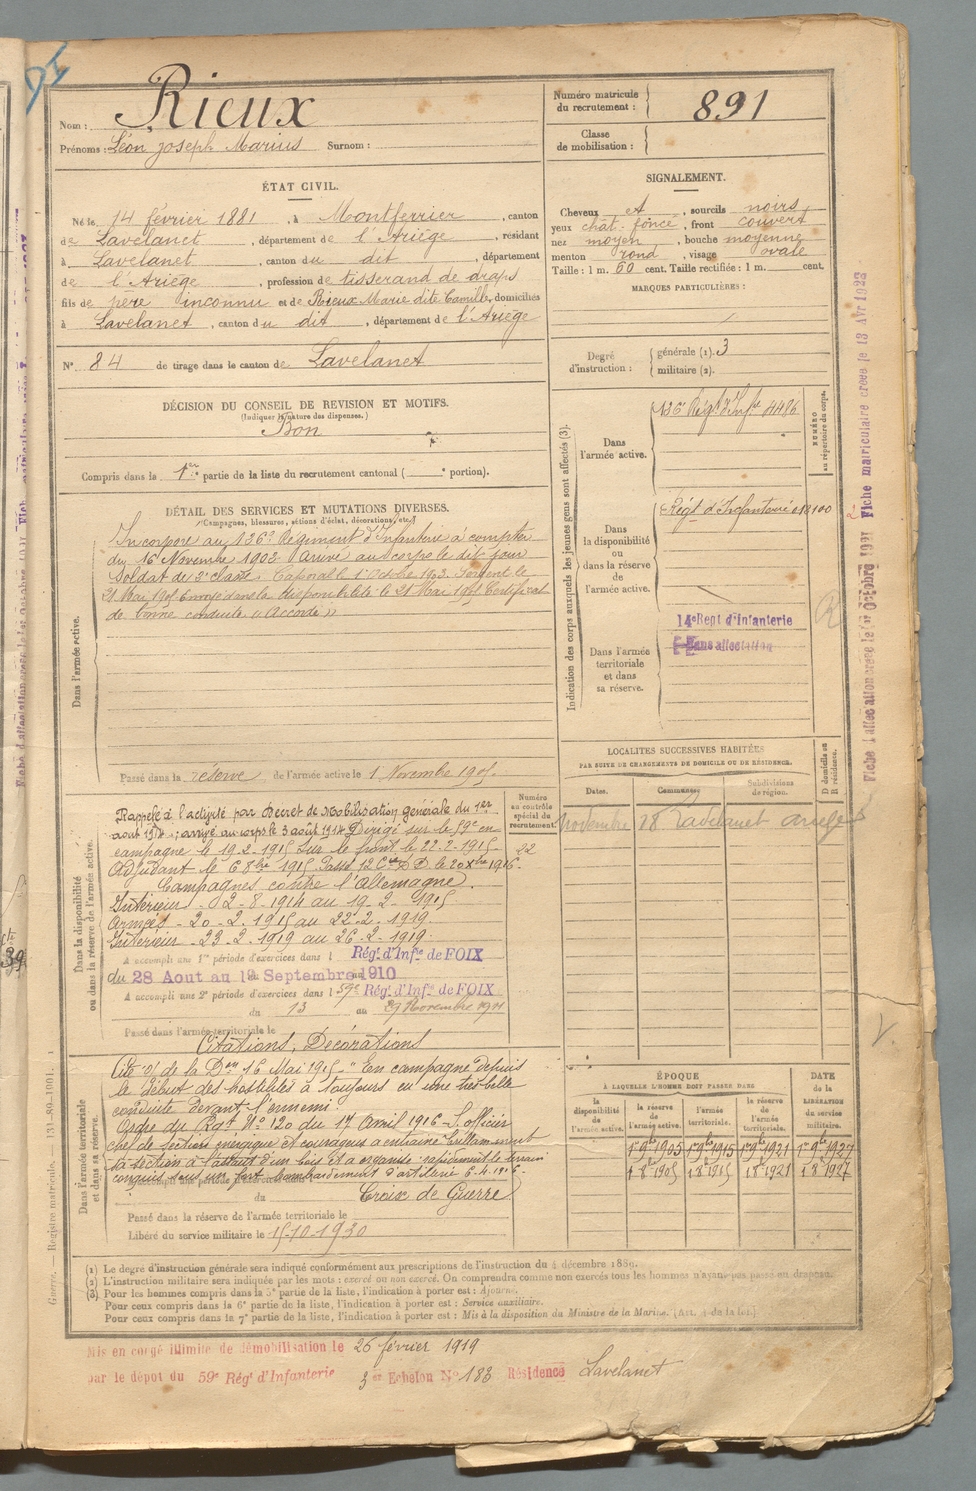 Nom : Rieux
Prénoms : Léon Joseph Marius Surnom :
Numéro matricule du recrutement : 891
Classe de mobilisation :
ÉTAT CIVIL.
Né le 14 février 1881, à Montferrier, canton
de Lavelanet, département de l'Ariège, résidant
à Lavelanet, canton du dit, département
de l'Ariège, profession de tisserand de draps
fils de père inconnu et de Rieux Marie dite Camille, domiciliés
à Lavelanet, canton du dit, département de l'Ariège
N° 84 de tirage dans le canton de Lavelanet
SIGNALEMENT.
Cheveux et, sourcils noirs
yeux chât. foncé, front couvert
nez moyen, bouche moyenne
menton rond, visage ovale
Taille : 1 m. 60 cent. Taille rectifiée : 1 m. cent.
MARQUES PARTICULIÈRES :
Degré d'instruction : générale (1). 3
militaire (2).
DÉCISION DU CONSEIL DE REVISION ET MOTIFS.
(Indiquer la nature des dispenses.)
Bon
Compris dans la 1re partie de la liste du recrutement cantonal ( ° portion).
DÉTAIL DES SERVICES ET MUTATIONS DIVERSES.
(Campagnes, blessures, actions d'éclat, décorations, etc.)
Dans l'armée active.
Incorporé au 126e Régiment d'Infanterie à compter
du 16 Novembre 1902 Arrivé au corps le dit jour
Soldat de 2e classe. Caporal le 1 Octobre 1903. Sergent le
21 Mai 1905 Envoyé dans la disponibilité le 21 Mai 1905 Certificat
de bonne conduite « Accordé »
Passé dans la réserve de l'armée active le 1 Novembre 1905.
Indication des corps auxquels les jeunes gens sont affectés (3).
NUMÉRO au répertoire du corps.
Dans l'armée active.
126e Régt d'Infie 4486
Dans la disponibilité ou dans la réserve de l'armée active.
Régt d'Infanterie
Dans l'armée territoriale et dans sa réserve.
14e Régt d'Infanterie
Sans affectation
LOCALITÉS SUCCESSIVES HABITÉES
PAR SUITE DE CHANGEMENTS DE DOMICILE OU DE RÉSIDENCE.
D domicile ou R résidence.
Dates. Communes. Subdivisions de région.
Novembre 18 Lavelanet Ariège
Numéro au contrôle spécial du recrutement.
22
Dans la disponibilité ou dans la réserve de l'armée active.
Rappelé à l'activité par Décret de Mobilisation générale du 1er
août 1914 ; arrivé au corps le 3 août 1914 Dirigé sur le 59e en
campagne le 19-2-1915 Sur le front le 22-2-1915-
Adjudant le 6 8bre 1915 Passé 12 Cie D D. le 20 Xbre 1916
Campagnes contre l'Allemagne.
Intérieur - 2-8-1914 au 19-2-1915
Armées - 20-2-1915 au 22-2-1919.
Intérieur - 23-2-1919 au 26-2-1919.
A accompli une 1re période d'exercices dans l Rég. d'Infie de FOIX
du 28 Aout au 19 Septembre 1910
A accompli une 2e période d'exercices dans l 59e Rég. d'Infie de FOIX
du 13 au 29 Novembre 1911
Passé dans l'armée territoriale le
Citations, Décorations
Dans l'armée territoriale et dans sa réserve.
Cité O/ de la Don 16 Mai 1915 - " En campagne depuis
le début des hostilités à toujours eu une très belle
conduite devant l'ennemi.
Ordre du Rgt N° 120 du 17 Avril 1916 - S. officier
chef de section énergique et courageux a entrainé brillamment
sa section à l'attaque d'un bois et a organisé rapidement le terrain
conquis sous un fort bombardement d'artillerie 6-4-1916 -
du Croix de Guerre
Passé dans la réserve de l'armée territoriale le
Libéré du service militaire le 15-10-1930
ÉPOQUE
À LAQUELLE L'HOMME DOIT PASSER DANS
DATE de la LIBÉRATION du service militaire.
la disponibilité de l'armée active. la réserve de l'armée active. l'armée territoriale. la réserve de l'armée territoriale.
1er 9bre 1905 1er 9bre 1915 1er 9bre 1921 1er 9bre 1927
1 8 1905 1 8 1915 1 8 1921 1 8 1927
(1) Le degré d'instruction générale sera indiqué conformément aux prescriptions de l'instruction du 4 décembre 1889.
(2) L'instruction militaire sera indiquée par les mots : exercé ou non exercé. On comprendra comme non exercés tous les hommes n'ayant pas passé au drapeau.
(3) Pour les hommes compris dans la 5e partie de la liste, l'indication à porter est : Ajourné.
Pour ceux compris dans la 6e partie de la liste, l'indication à porter est : Service auxiliaire.
Pour ceux compris dans la 7e partie de la liste, l'indication à porter est : Mis à la disposition du Ministre de la Marine. (Art. 4 de la loi.)
Guerre. — Registre matricule. — 131-89-1001.
Mis en congé illimité de démobilisation le 26 février 1919
par le dépôt du 59e Rég. d'Infanterie 3er Echelon N° 183 Résidence Lavelanet
Fiche d'affectation créée le 1er Octobre 1921 Fiche matriculaire créée le 13 Avr 1923
39